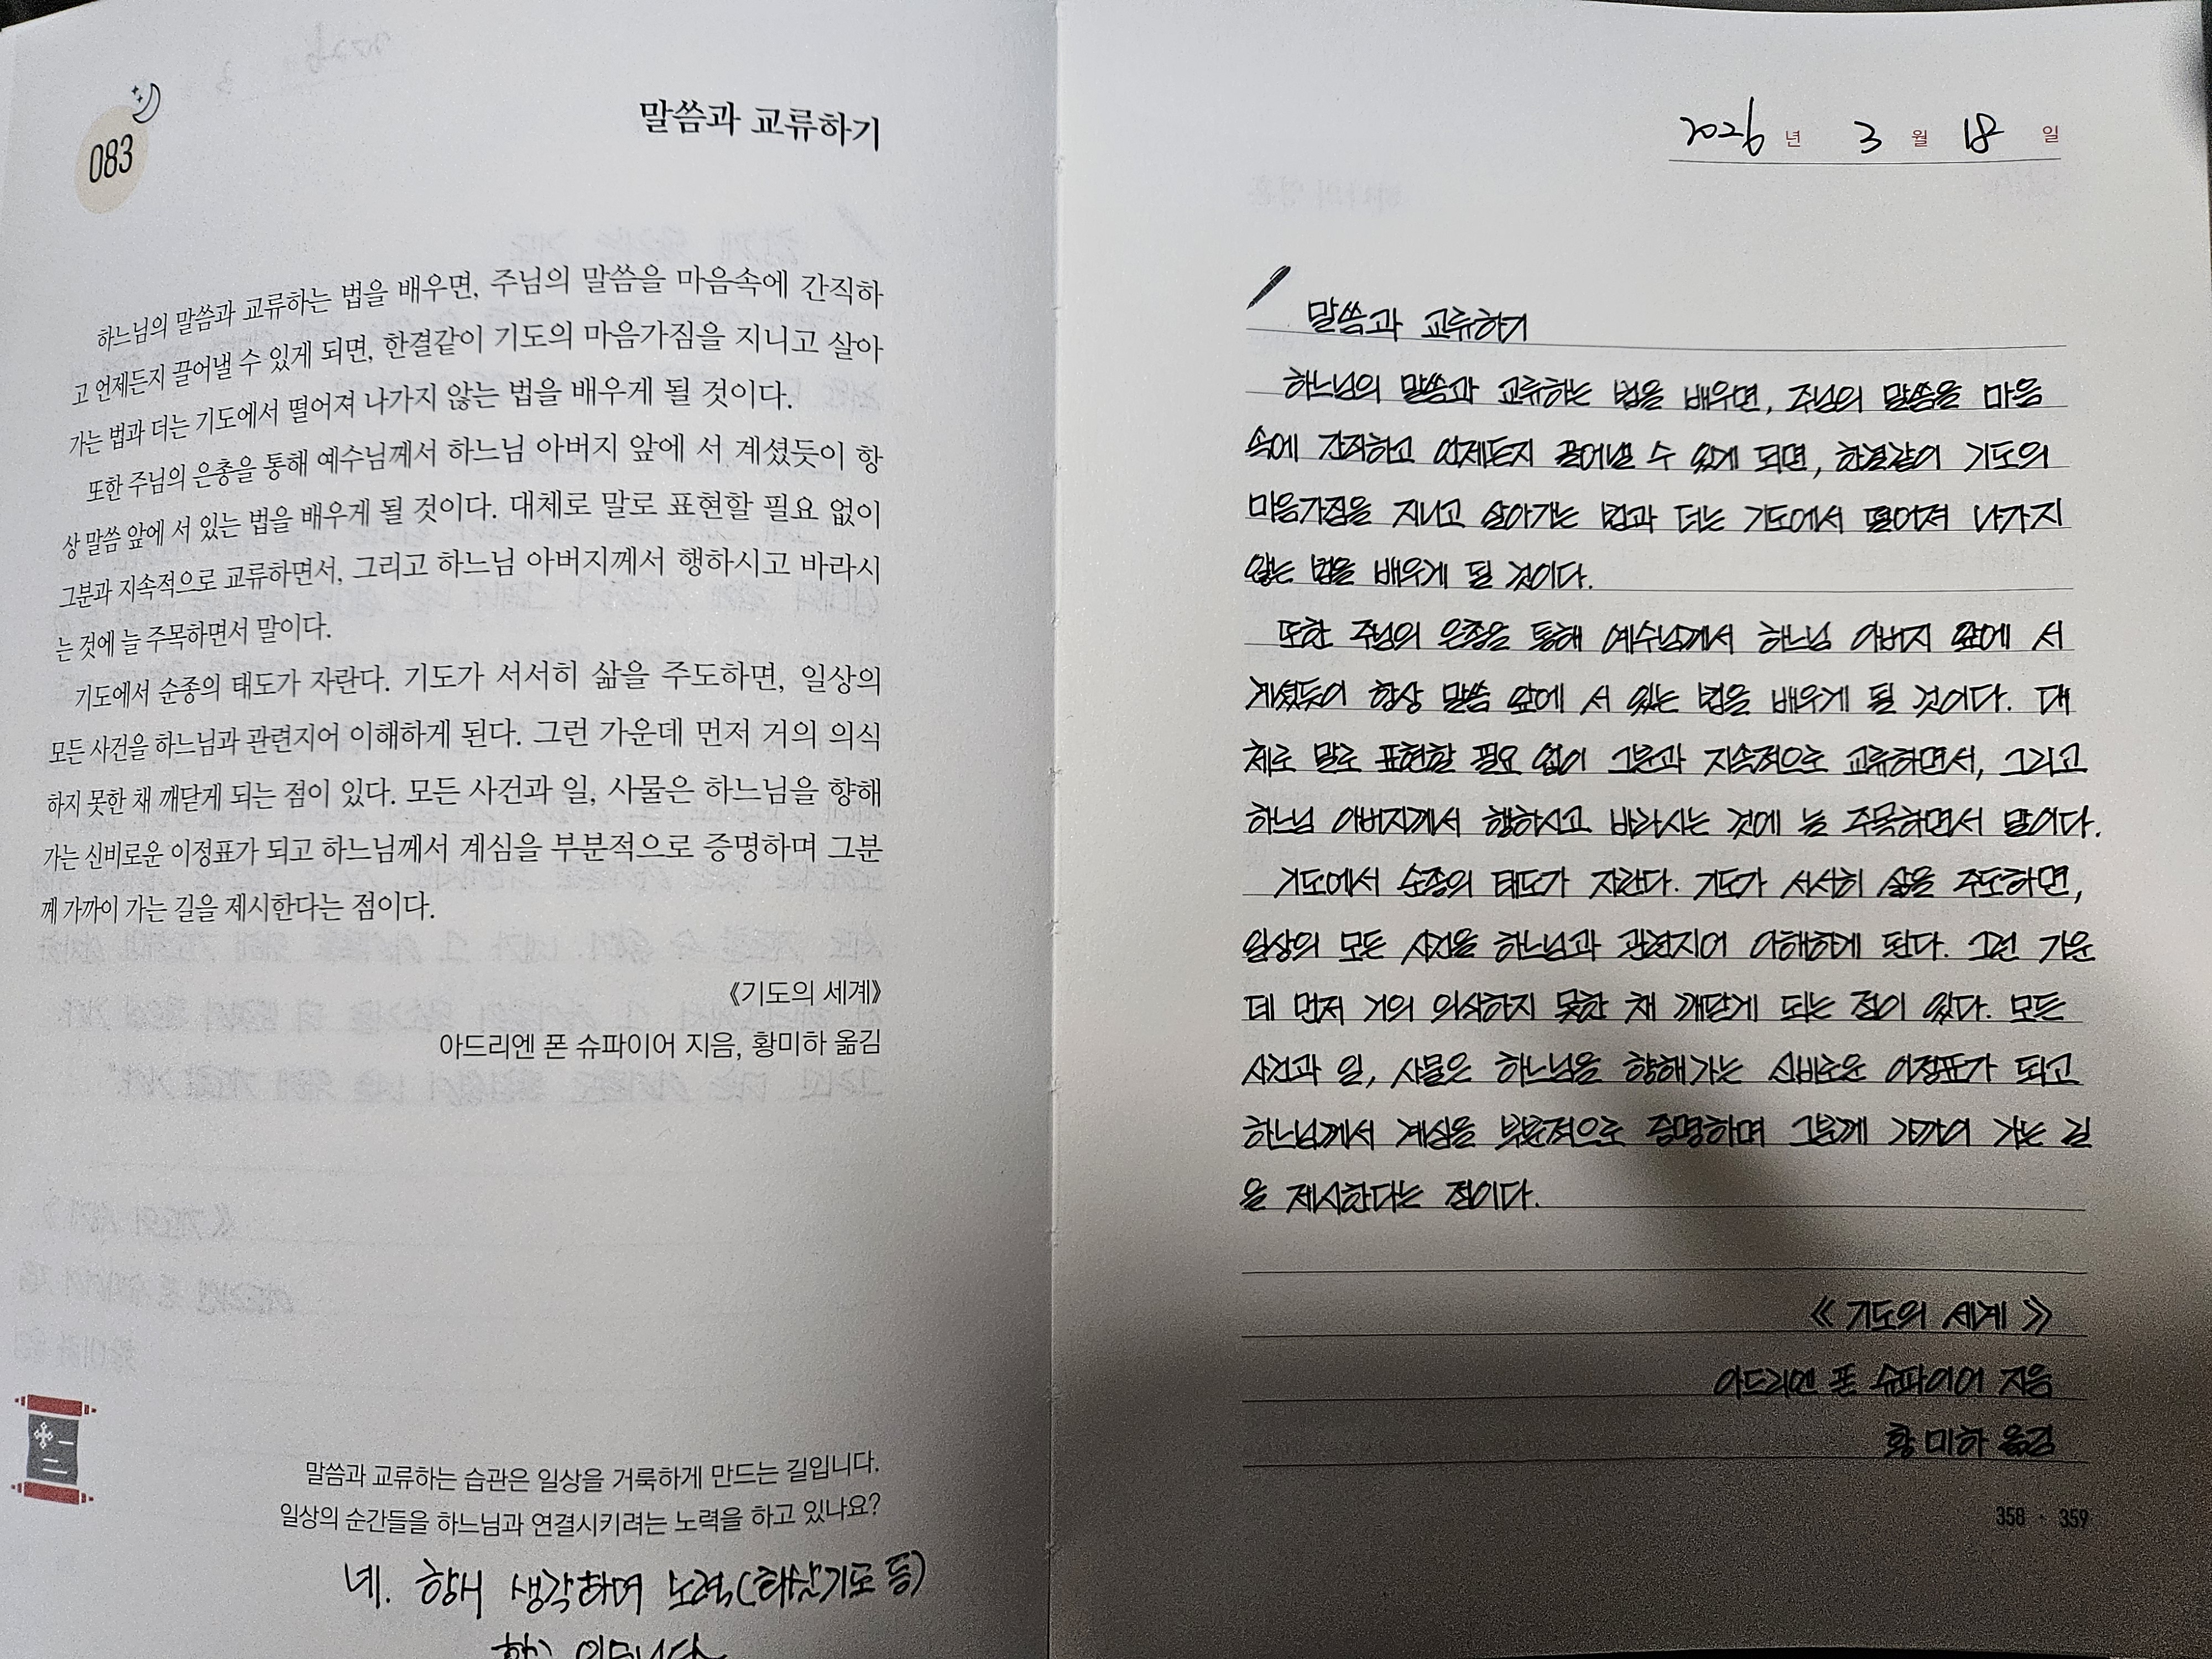 083
말씀과 교류하기
하느님의 말씀과 교류하는 법을 배우면, 주님의 말씀을 마음속에 간직하
고 언제든지 끌어낼 수 있게 되면, 한결같이 기도의 마음가짐을 지니고 살아
가는 법과 더는 기도에서 떨어져 나가지 않는 법을 배우게 될 것이다.
또한 주님의 은총을 통해 예수님께서 하느님 아버지 앞에 서 계셨듯이 항
상 말씀 앞에 서 있는 법을 배우게 될 것이다. 대체로 말로 표현할 필요 없이
그분과 지속적으로 교류하면서, 그리고 하느님 아버지께서 행하시고 바라시
는 것에 늘 주목하면서 말이다.
기도에서 순종의 태도가 자란다. 기도가 서서히 삶을 주도하면, 일상의
모든 사건을 하느님과 관련지어 이해하게 된다. 그런 가운데 먼저 거의 의식
하지 못한 채 깨닫게 되는 점이 있다. 모든 사건과 일, 사물은 하느님을 향해
가는 신비로운 이정표가 되고 하느님께서 계심을 부분적으로 증명하며 그분
께 가까이 가는 길을 제시한다는 점이다.
《기도의 세계》
아드리엔 폰 슈파이어 지음, 황미하 옮김
말씀과 교류하는 습관은 일상을 거룩하게 만드는 길입니다.
일상의 순간들을 하느님과 연결시키려는 노력을 하고 있나요?
네. 항시 생각하며 노력(화살기도 등)
2026 년 3 월 18 일
말씀과 교류하기
하느님의 말씀과 교류하는 법을 배우면, 주님의 말씀을 마음
속에 간직하고 언제든지 끌어낼 수 있게 되면, 한결같이 기도의
마음가짐을 지니고 살아가는 법과 더는 기도에서 떨어져 나가지
않는 법을 배우게 될 것이다.
또한 주님의 은총을 통해 예수님께서 하느님 아버지 앞에 서
계셨듯이 항상 말씀 앞에 서 있는 법을 배우게 될 것이다. 대
체로 말로 표현할 필요 없이 그분과 지속적으로 교류하면서, 그리고
하느님 아버지께서 행하시고 바라시는 것에 늘 주목하면서 말이다.
기도에서 순종의 태도가 자란다. 기도가 서서히 삶을 주도하면,
일상의 모든 사건을 하느님과 관련지어 이해하게 된다. 그런 가운
데 먼저 거의 의식하지 못한 채 깨닫게 되는 점이 있다. 모든
사건과 일, 사물은 하느님을 향해가는 신비로운 이정표가 되고
하느님께서 계심을 부분적으로 증명하며 그분께 가까이 가는 길
을 제시한다는 점이다.
《기도의 세계》
아드리엔 폰 슈파이어 지음
황미하 옮김
358 · 359